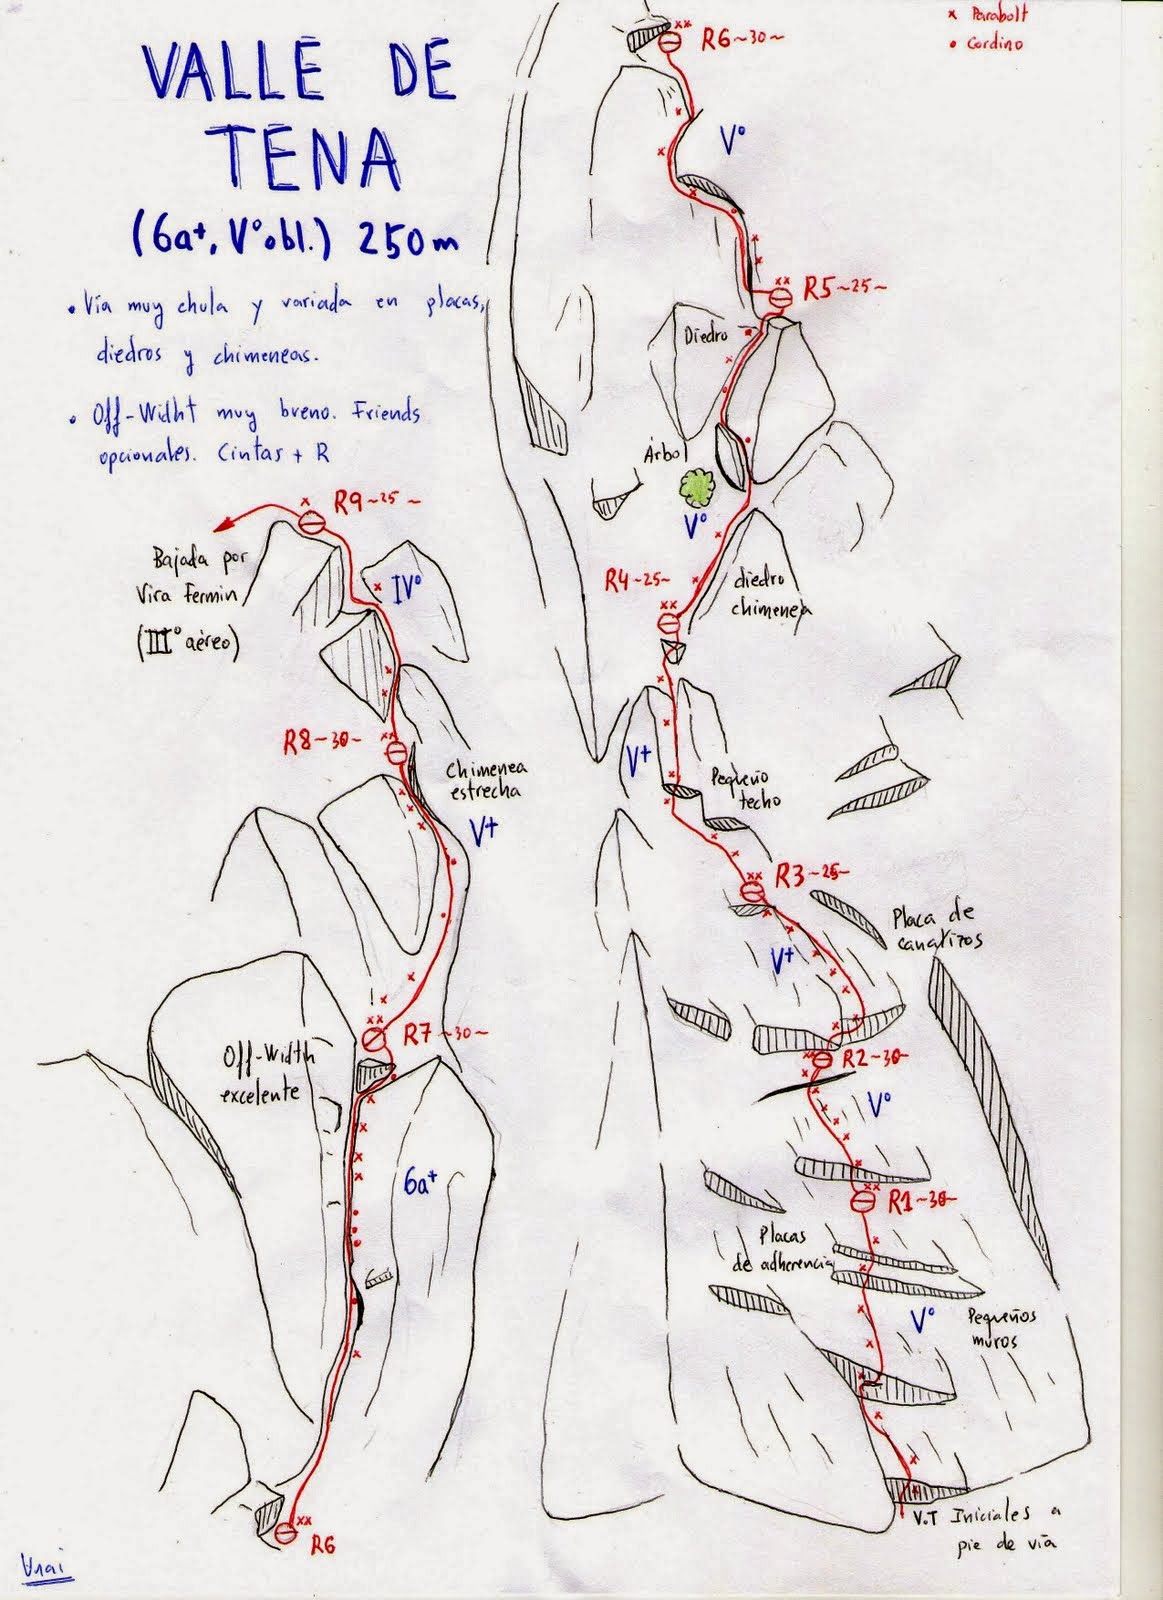 VALLE DE
TENA
(6a+, V°obl.) 250m
• Vía muy chula y variada en placas,
diedros y chimeneas.
• Off-Widht muy breno. Friends
opcionales. Cintas + R
x Parabolt
• Cordino
R6~30~
V°
R5~25~
Diedro
Árbol
V°
R4~25~
diedro
chimenea
V+
Pequeño
techo
R3~25~
Placa de
canalizos
V+
R2~30~
V°
R1~30~
Placas
de adherencia
V°
Pequeños
muros
V.T Iniciales a
pie de vía
R9~25~
Bajada por
Vira Fermín
(III° aéreo)
IV°
R8~30~
Chimenea
estrecha
V+
R7~30~
Off-Width
excelente
6a+
R6
Unai